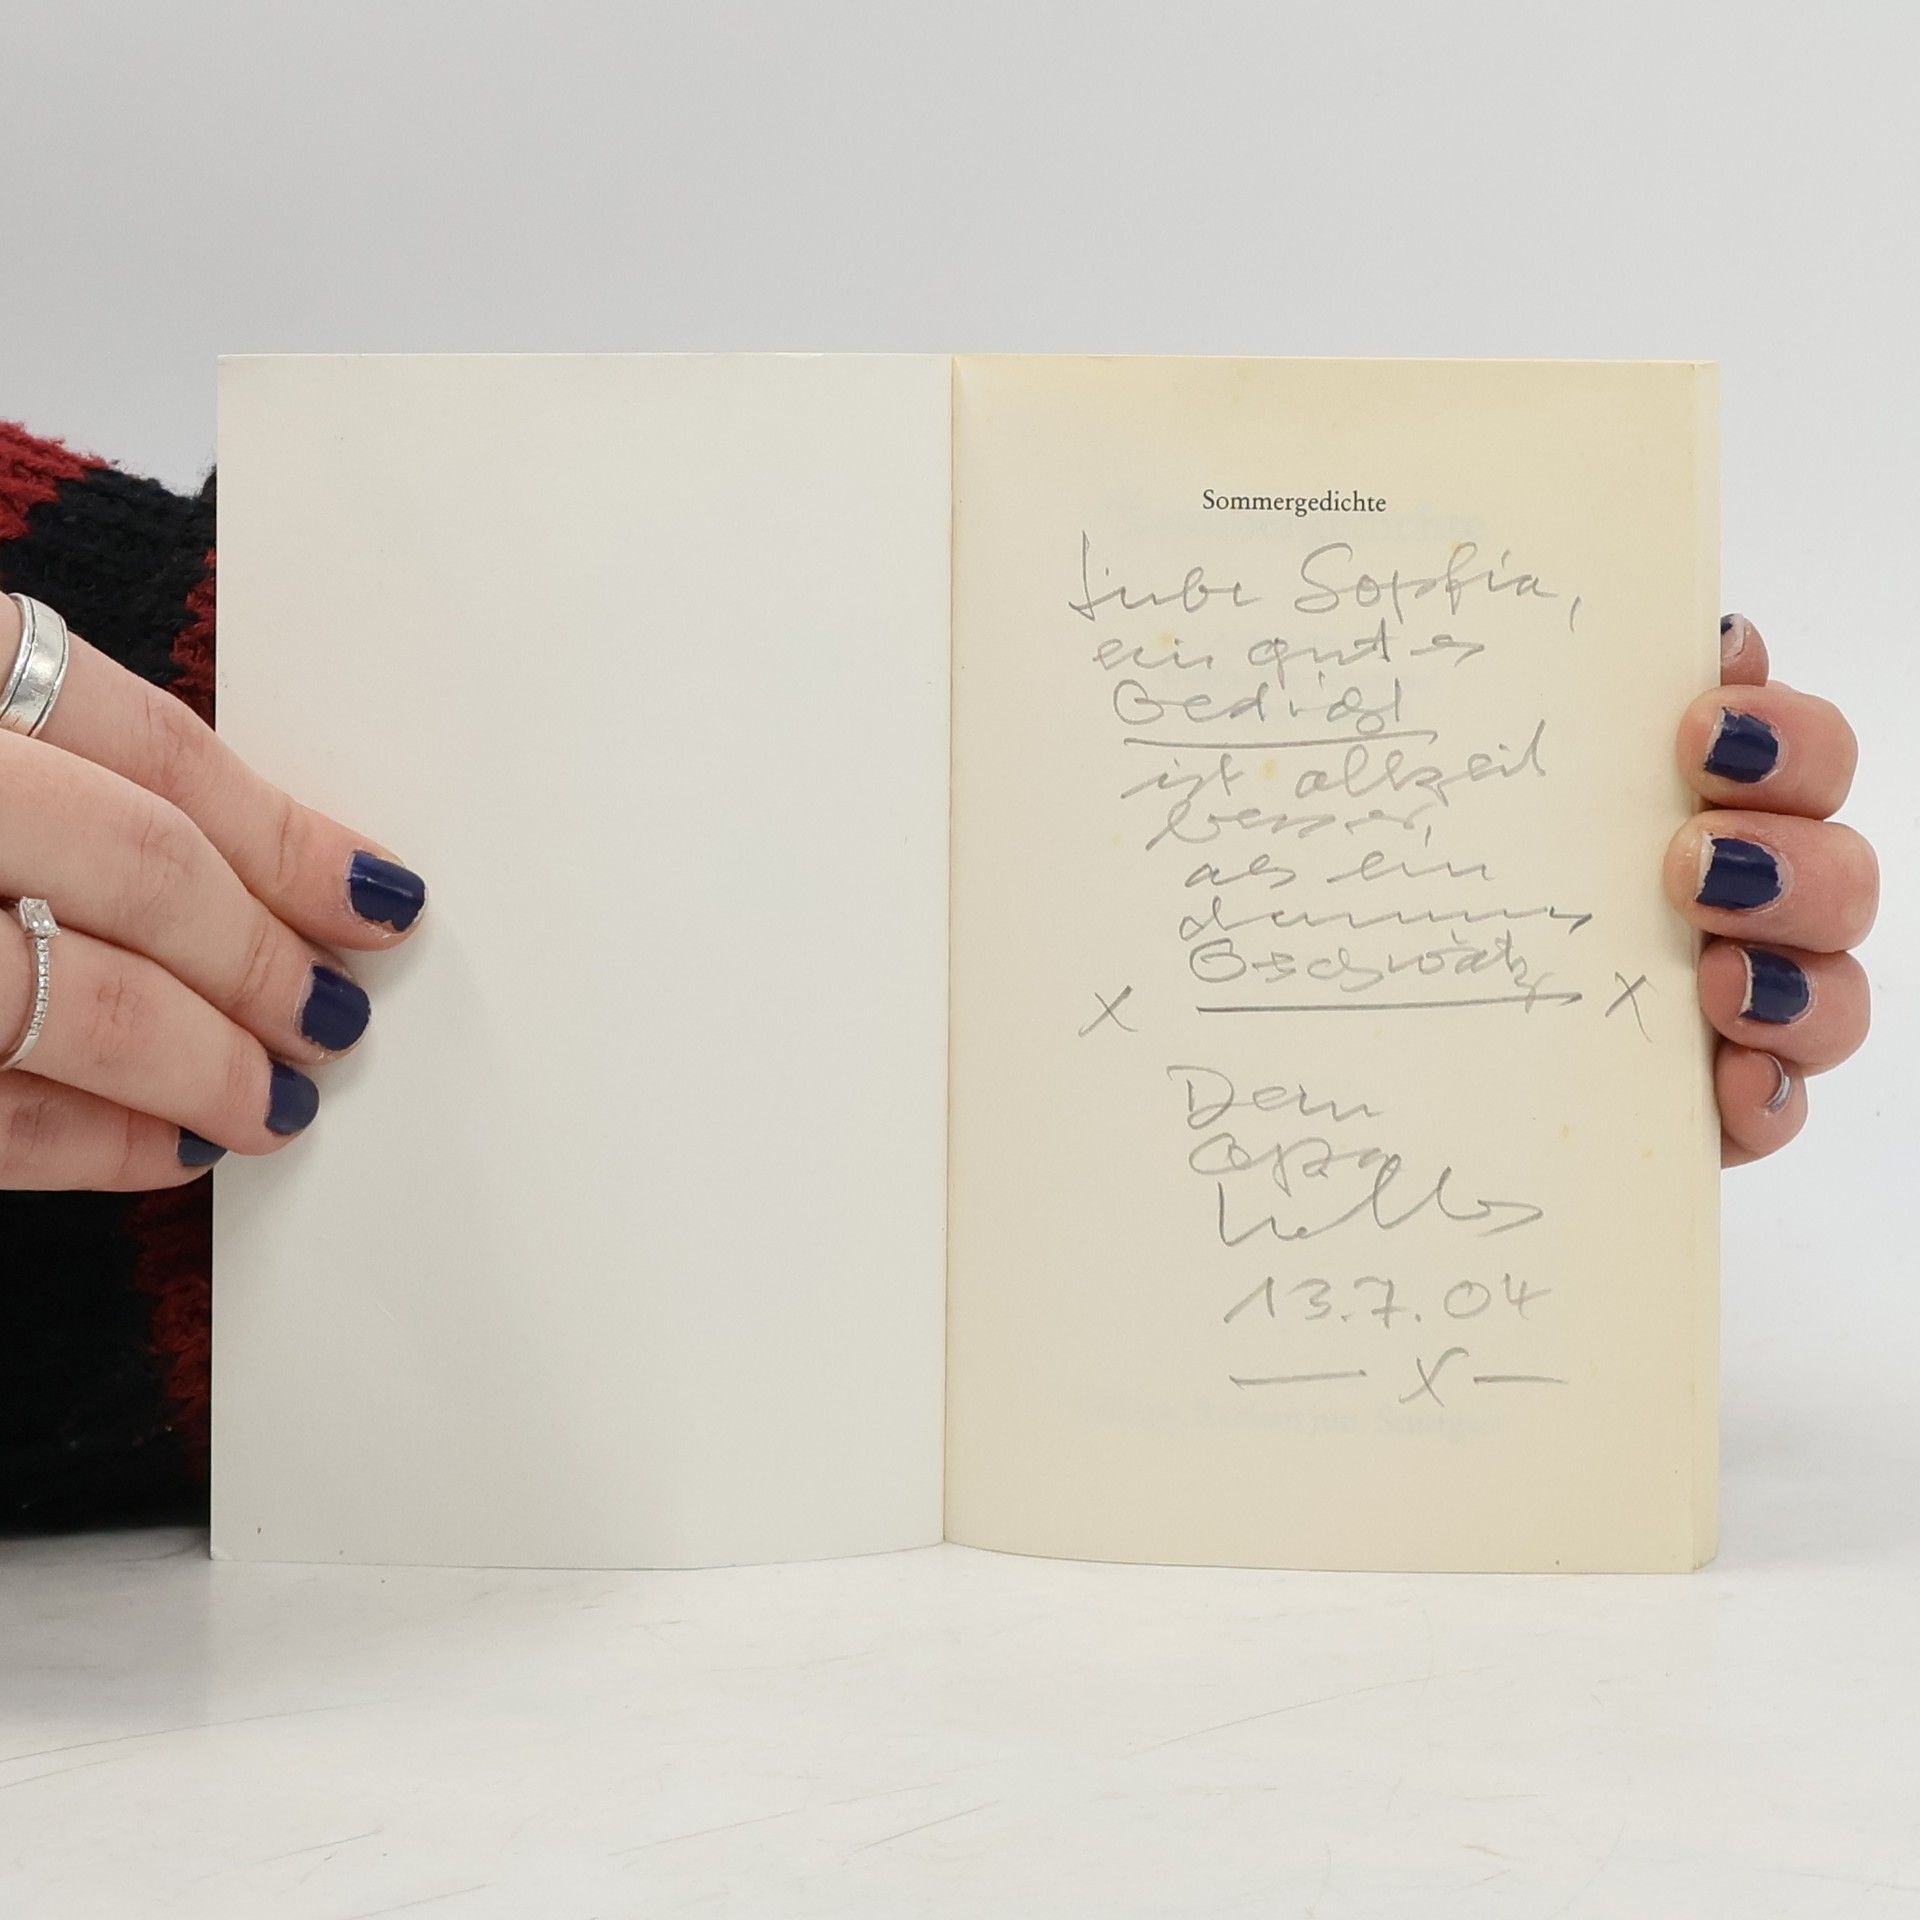 Sommergedichte
Liebe Sophia,
ein gutes
Gedicht
ist allzeit
besser,
als ein
dummes
Geschwätz
x x
Dein
Opa
13.7.04
— x —